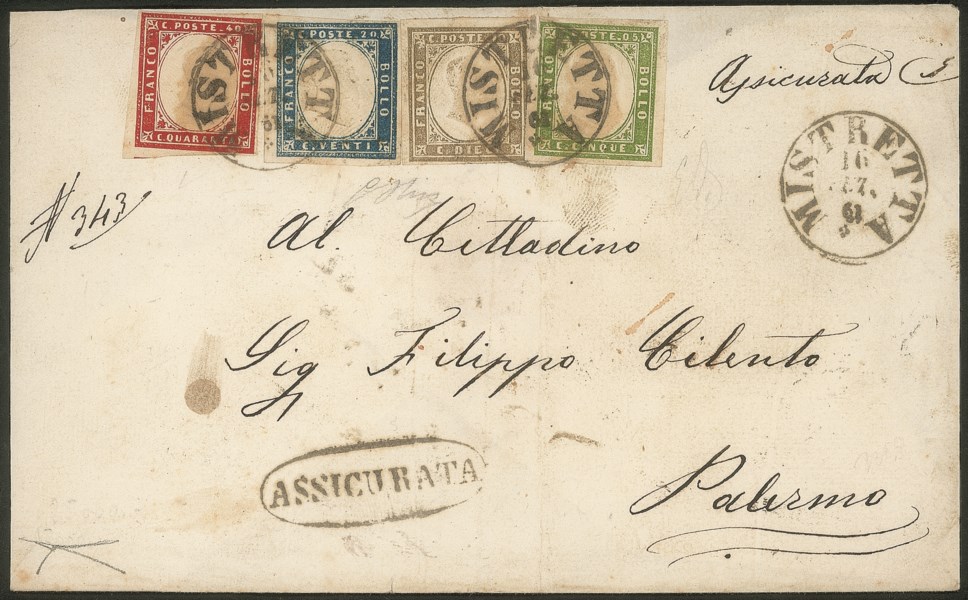 C. POSTE. 40
FRANCO
BOLLO
C. QUARANTA
C. POSTE. 20
FRANCO
BOLLO
C. VENTI
C. POSTE.
FRANCO
BOLLO
C. POSTE. 05
FRANCO
BOLLO
C. CINQUE
Assicurata
MISTRETTA
16
61
N 343
Al. Cittadino
Sig Filippo Cilento
ASSICURATA
Palermo